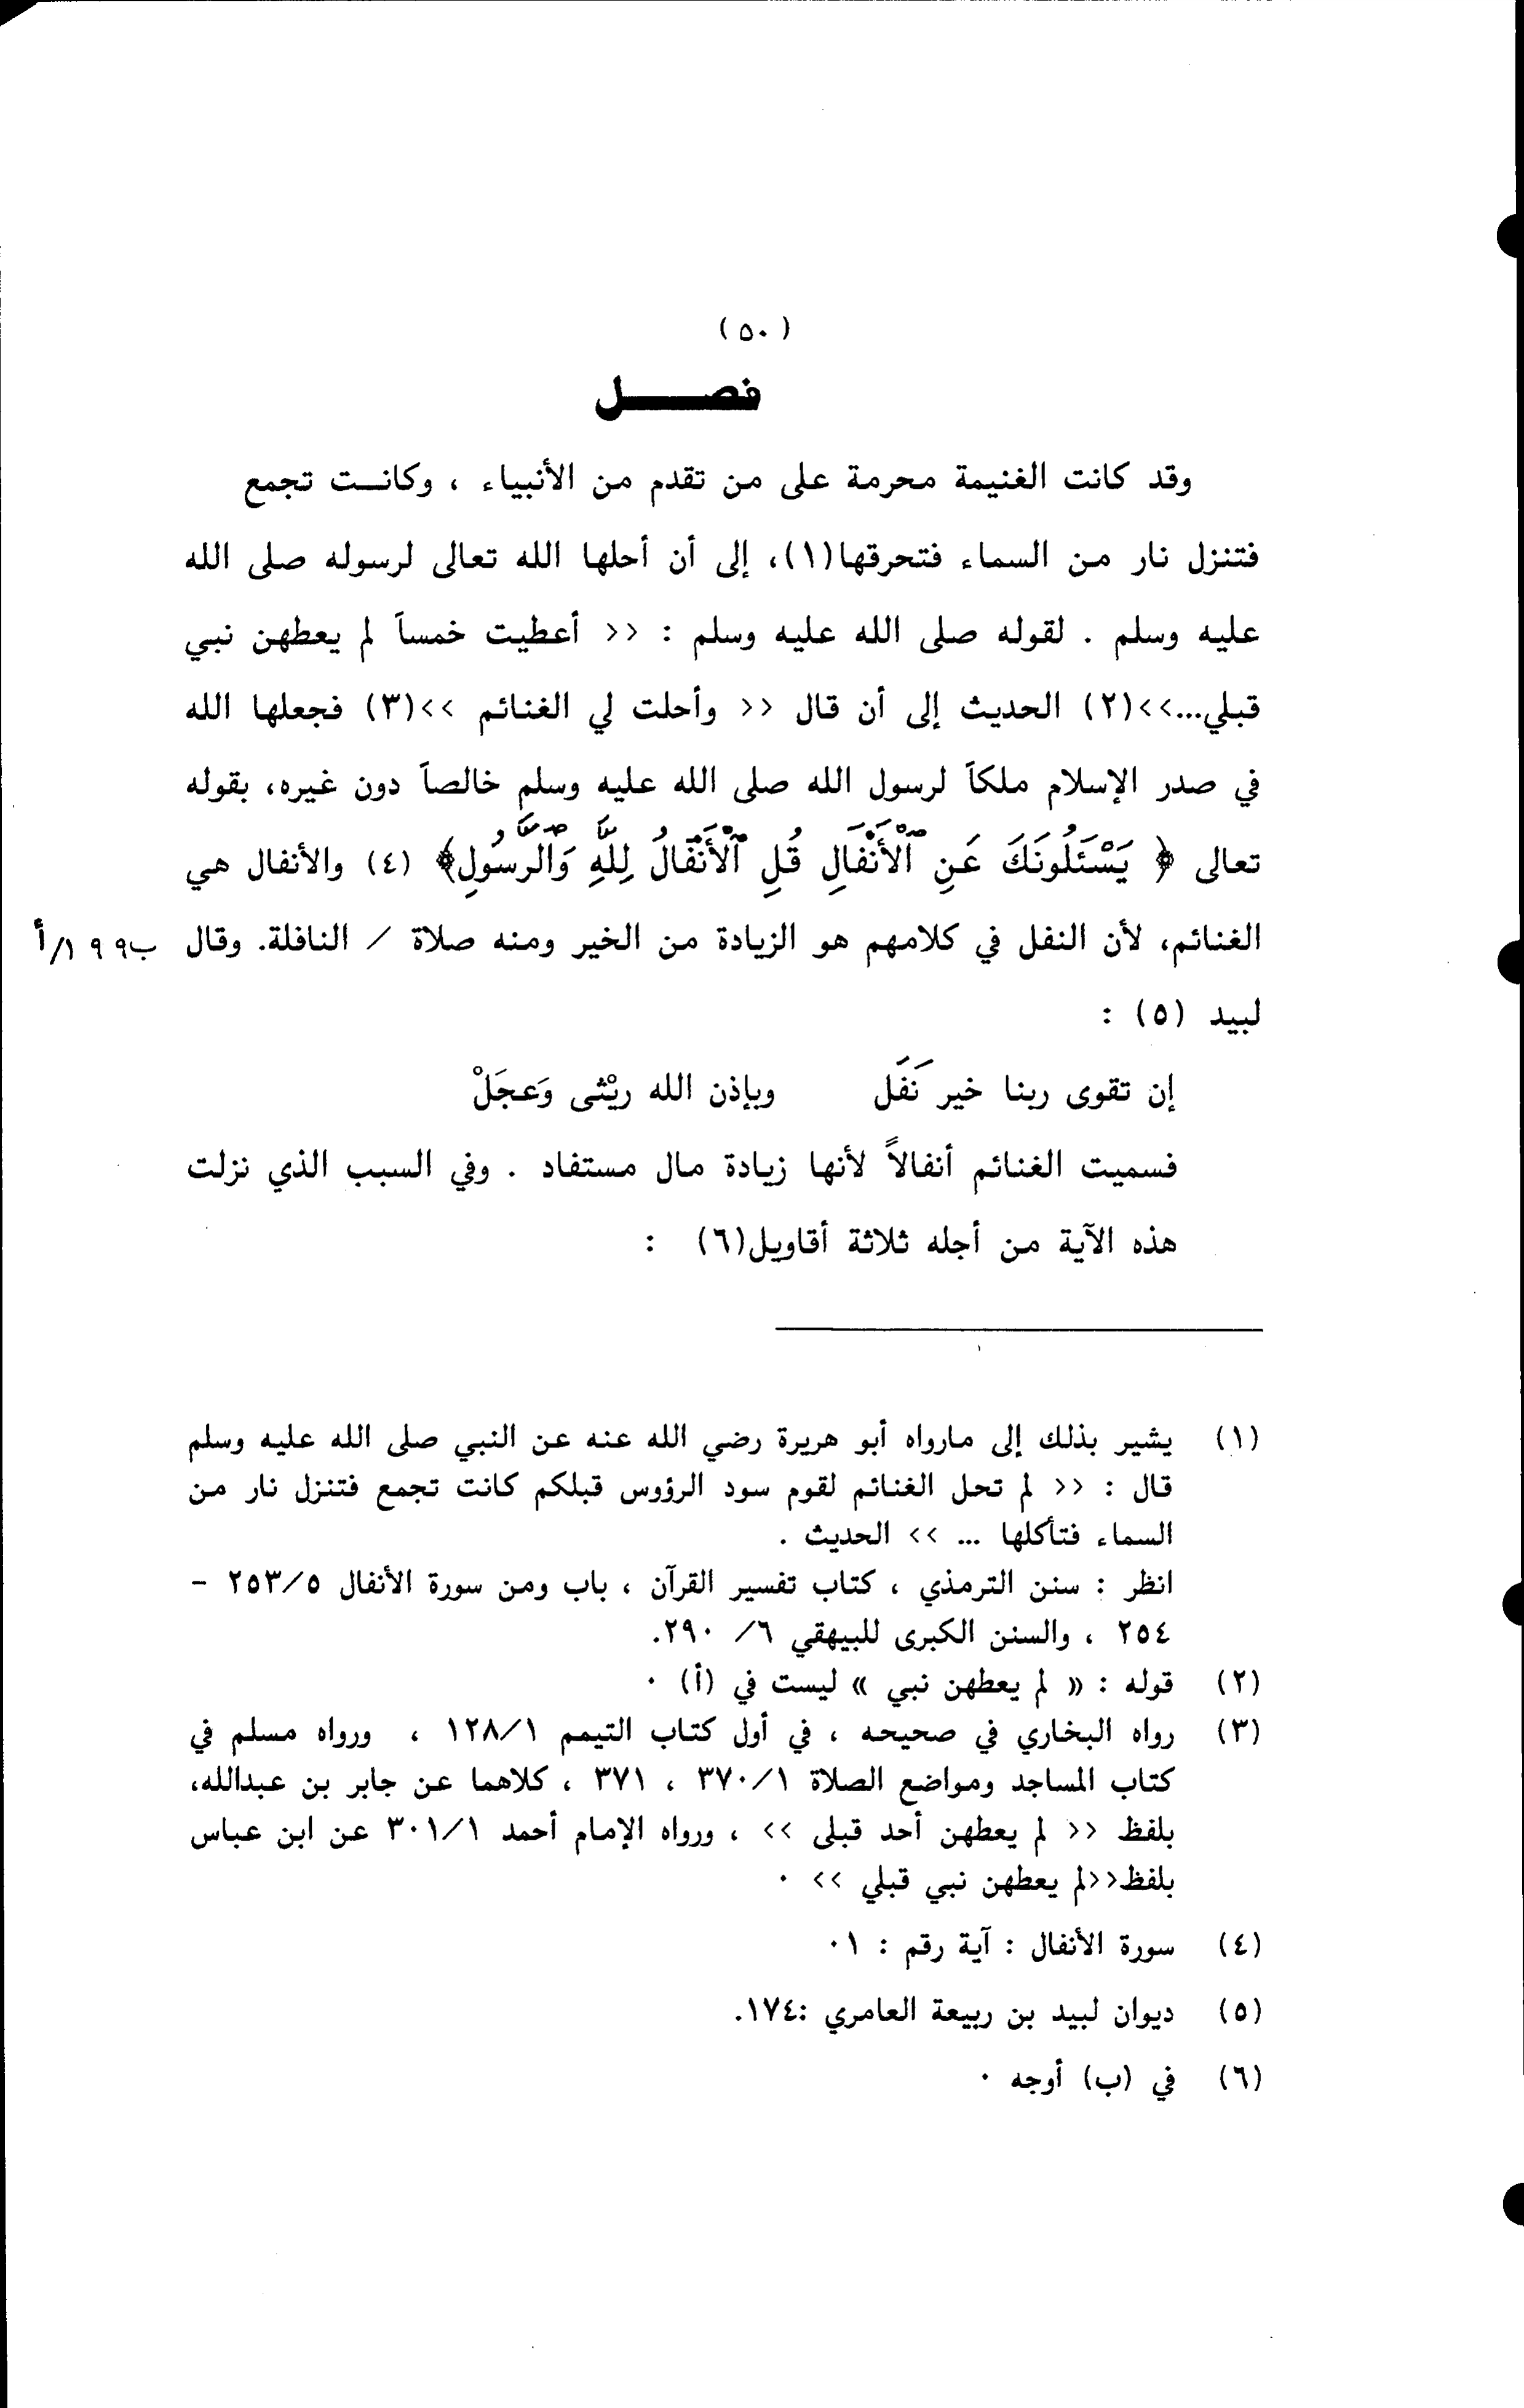 ( ٥٠ )
فصـــــل
وقد كانت الغنيمة محرمة على من تقدم من الأنبياء ، وكانــت تجمع
فتنزل نار من السماء فتحرقها(١)، إلى أن أحلها الله تعالى لرسوله صلى الله
عليه وسلم . لقوله صلى الله عليه وسلم : << أعطيت خمساً لم يعطهن نبي
قبلي...>>(٢) الحديث إلى أن قال << وأحلت لي الغنائم >>(٣) فجعلها الله
في صدر الإسلام ملكاً لرسول الله صلى الله عليه وسلم خالصاً دون غيره، بقوله
تعالى ﴿ يَسْـَٔلُونَكَ عَنِ ٱلْأَنْفَالِ قُلِ ٱلْأَنْفَالُ لِلَّهِ وَالرَّسُولِ﴾ (٤) والأنفال هي
الغنائم، لأن النفل في كلامهم هو الزيادة من الخير ومنه صلاة / النافلة. وقال ب١٩٩/أ
لبيد (٥) :
إن تقوى ربنا خير نَفَل وبإذن الله ريْثى وَعجَلْ
فسميت الغنائم أنفالاً لأنها زيادة مال مستفاد . وفي السبب الذي نزلت
هذه الآية من أجله ثلاثة أقاويل(٦) :
(١) يشير بذلك إلى مارواه أبو هريرة رضي الله عنه عن النبي صلى الله عليه وسلم
قال : << لم تحل الغنائم لقوم سود الرؤوس قبلكم كانت تجمع فتنزل نار من
السماء فتأكلها ... >> الحديث .
انظر : سنن الترمذي ، كتاب تفسير القرآن ، باب ومن سورة الأنفال ٢٥٣/٥ –
٢٥٤ ، والسنن الكبرى للبيهقي ٦/ ٢٩٠.
(٢) قوله : « لم يعطهن نبي » ليست في (أ) ٠
(٣) رواه البخاري في صحيحه ، في أول كتاب التيمم ١٢٨/١ ، ورواه مسلم في
كتاب المساجد ومواضع الصلاة ٣٧٠/١ ، ٣٧١ ، كلاهما عن جابر بن عبدالله،
بلفظ << لم يعطهن أحد قبلى >> ، ورواه الإمام أحمد ٣٠١/١ عن ابن عباس
بلفظ<<لم يعطهن نبي قبلي >> ٠
(٤) سورة الأنفال : آية رقم : ٠١
(٥) ديوان لبيد بن ربيعة العامري :١٧٤.
(٦) في (ب) أوجه ٠